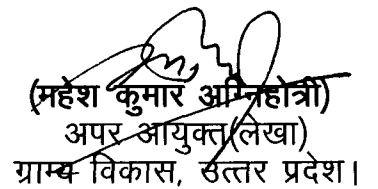 (महेश कुमार अग्निहोत्री)
अपर आयुक्त(लेखा)
ग्राम्य विकास, उत्तर प्रदेश।